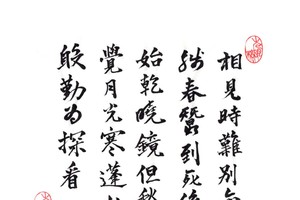 相見時難別
殘春蠶到死
始乾曉鏡但愁
覺月光寒蓬
殷勤为探看